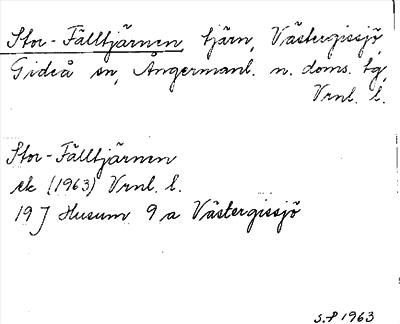 Stor-Fälltjärnen, tjärn, Västergissjö,
Gideå sn, Ångermanl. n. doms. tg,
Vrnl. l.
Stor-Fälltjärnen
ek (1963) Vrnl. l.
19 J Husum 9 a Västergissjö
1963